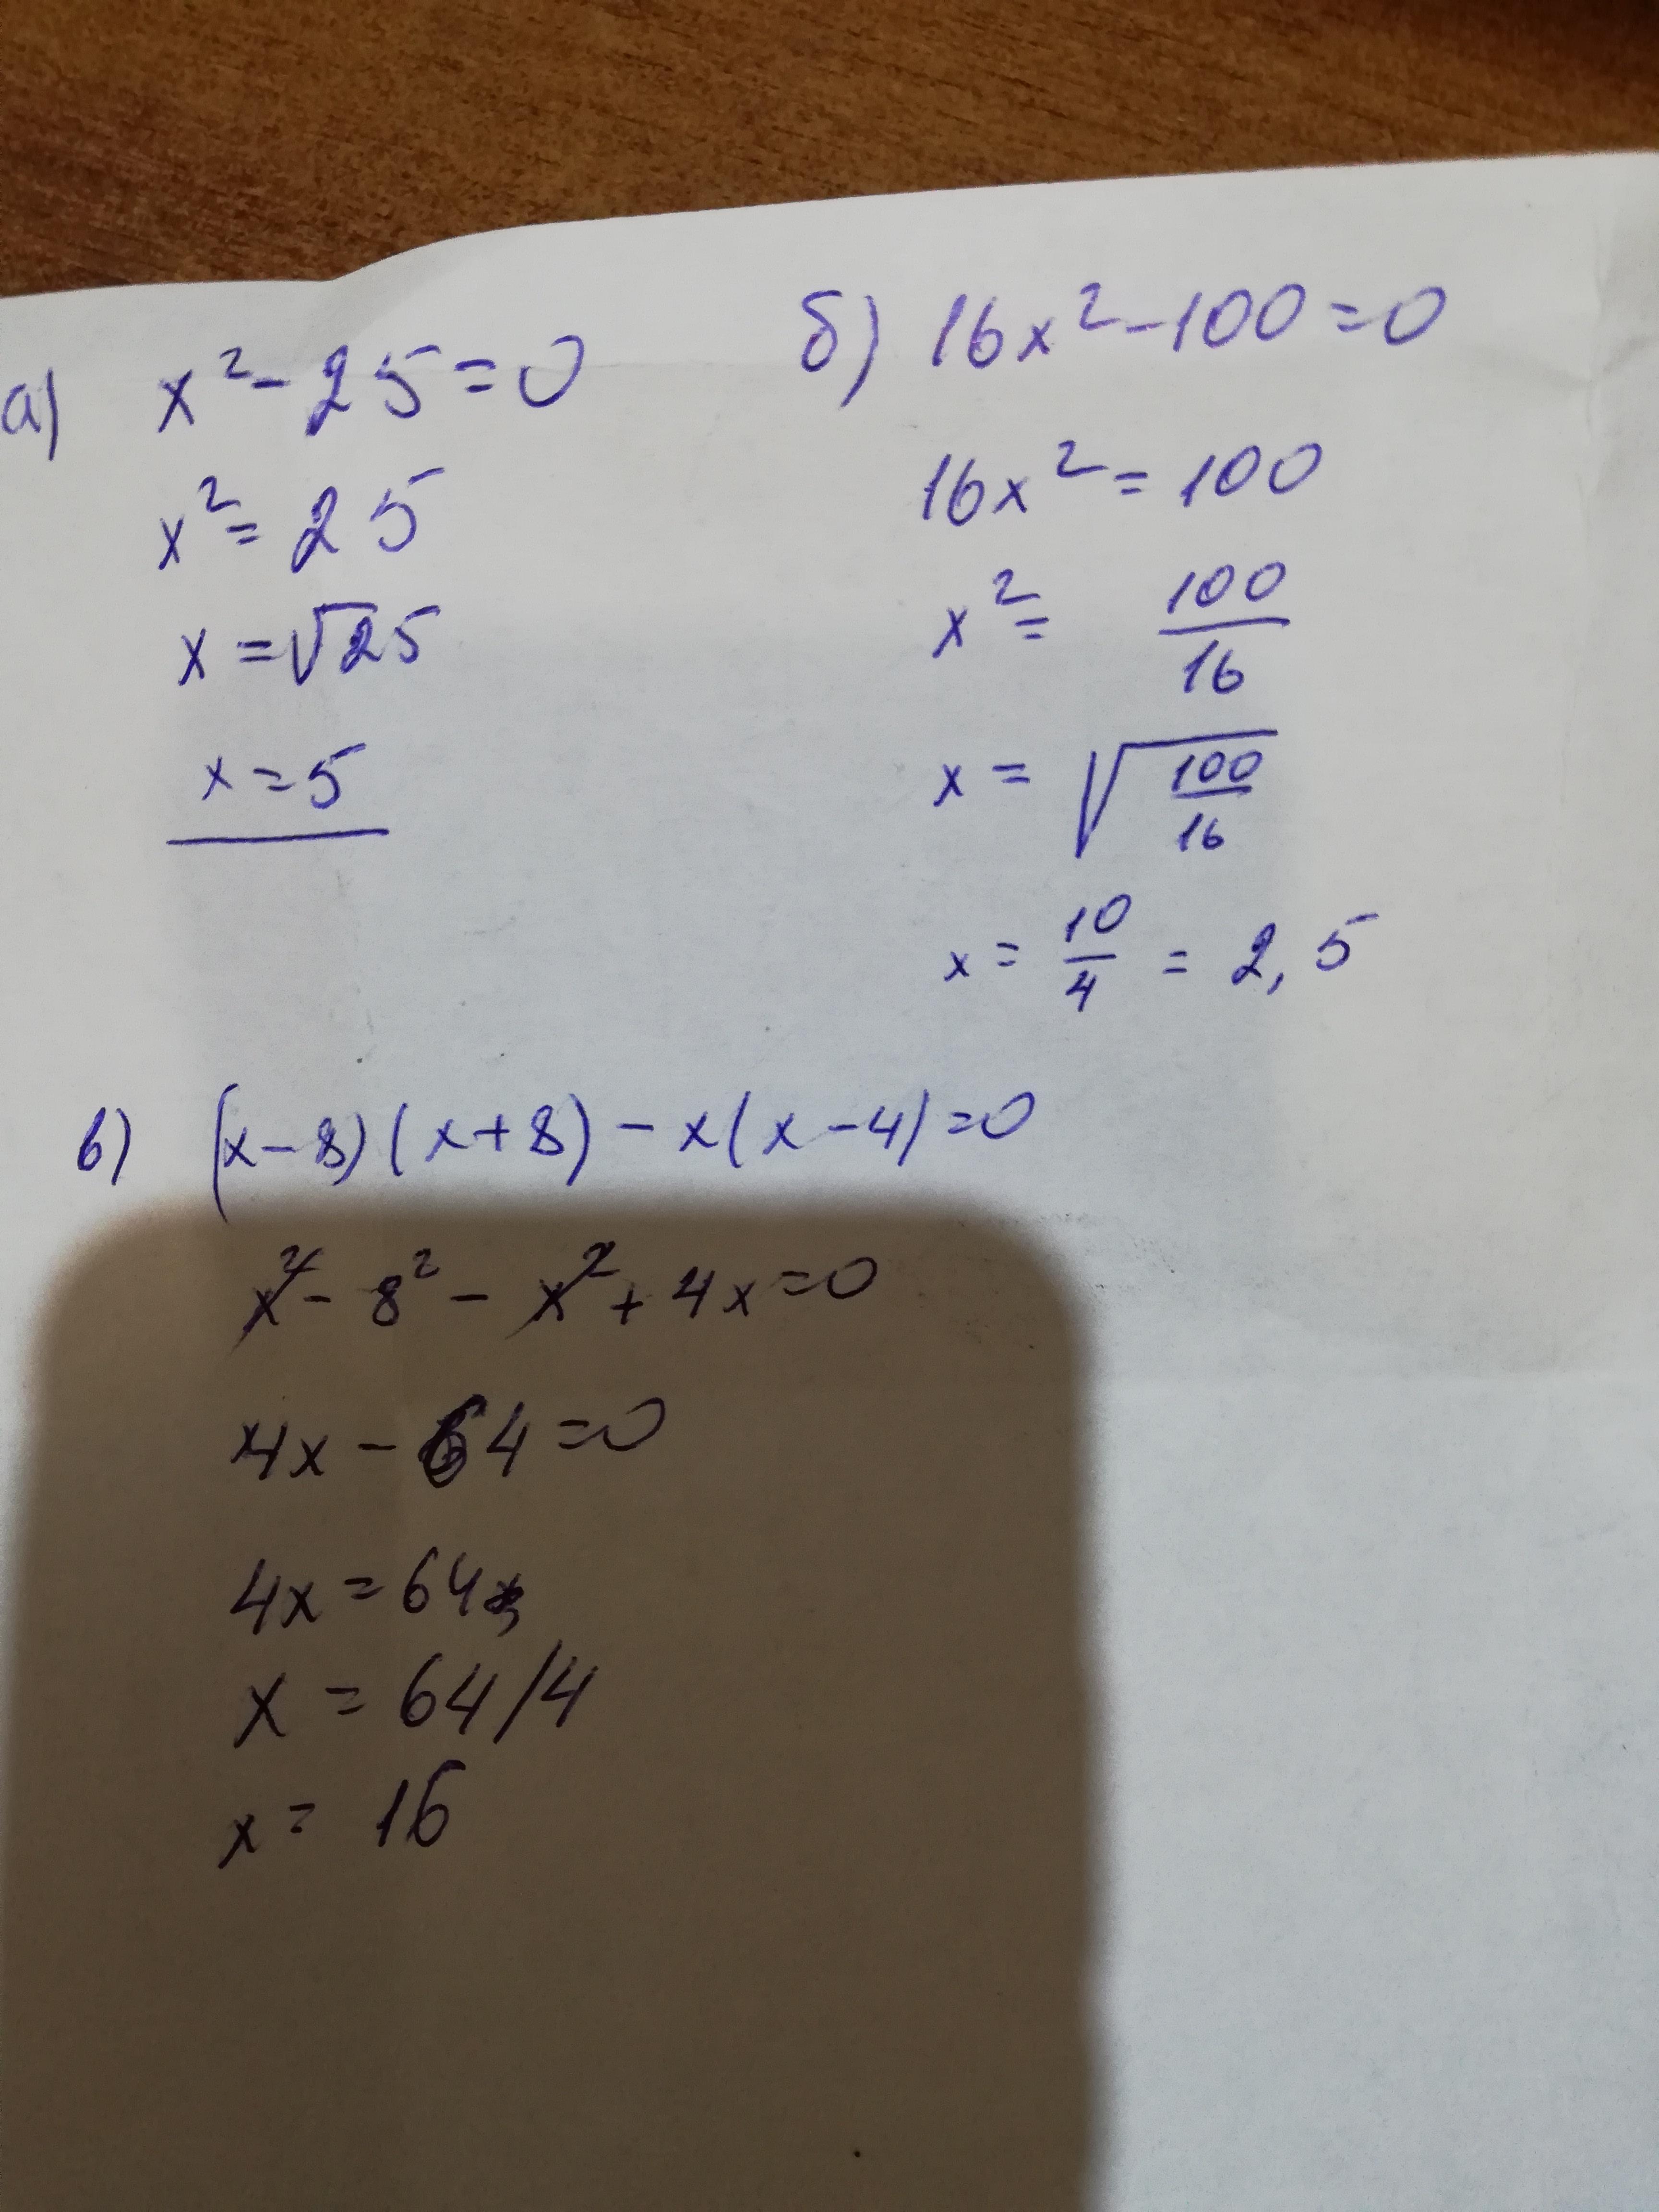 а) x² - 25 = 0
x² = 25
x = √25
x = 5
б) 16x² - 100 = 0
16x² = 100
x² = 100/16
x = √(100/16)
x = 10/4 = 2,5
в) (x - 8)(x + 8) - x(x - 4) = 0
x² - 8² - x² + 4x = 0
4x - 64 = 0
4x = 64
x = 64/4
x = 16